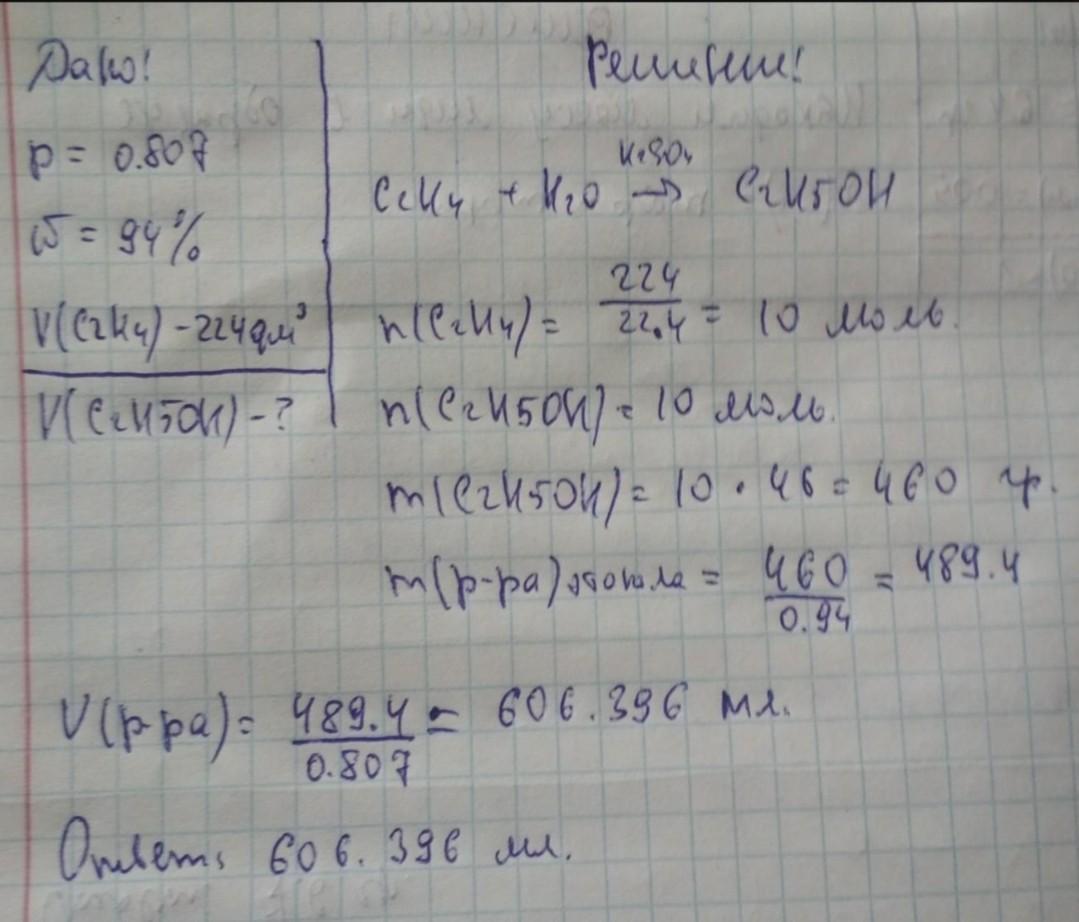 Дано:
p = 0.807
ω = 94%
V(C2H4) - 224дм³
V(C2H5OH) - ?
Решение:
C2H4 + H2O → C2H5OH
H2SO4
n(C2H4) = 224/22.4 = 10 моль.
n(C2H5OH) = 10 моль.
m(C2H5OH) = 10 · 46 = 460 гр.
m(р-ра) этанола = 460/0.94 = 489.4
V(р-ра) = 489.4/0.807 = 606.396 мл.
Ответ: 606.396 мл.